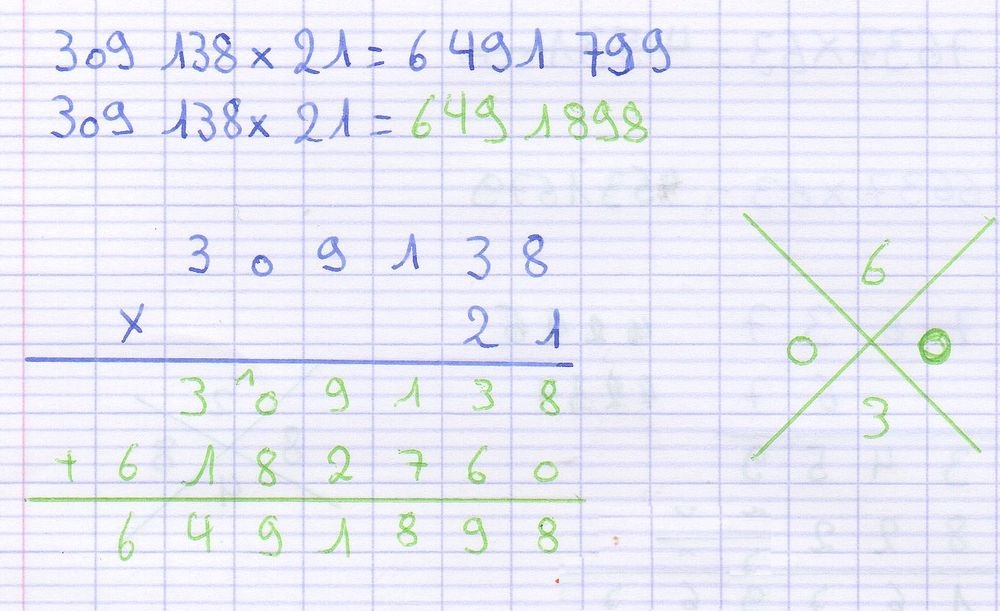 309 138 × 21 = 6 491 799
309 138 × 21 = 649 1898
3 0 9 1 3 8
× 2 1
3 1 0 9 1 3 8
+ 6 1 8 2 7 6 0
6 4 9 1 8 9 8
6
0 0
3